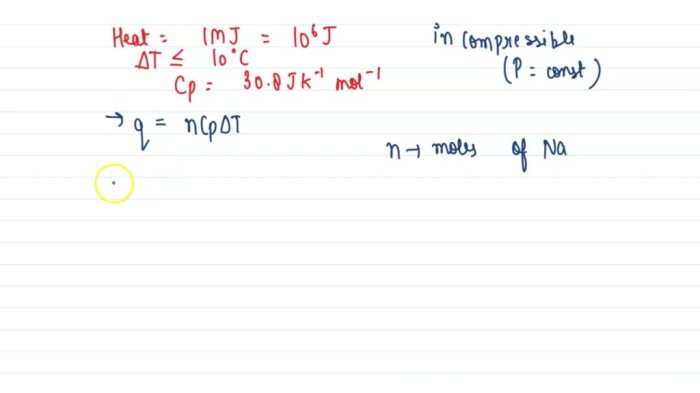 Heat = 1MJ = 10⁶ J
ΔT ≤ 10°C
Cp = 30.8 JK⁻¹ mol⁻¹
incompressible
(P = const)
→ q = nCpΔT
n → moles of Na